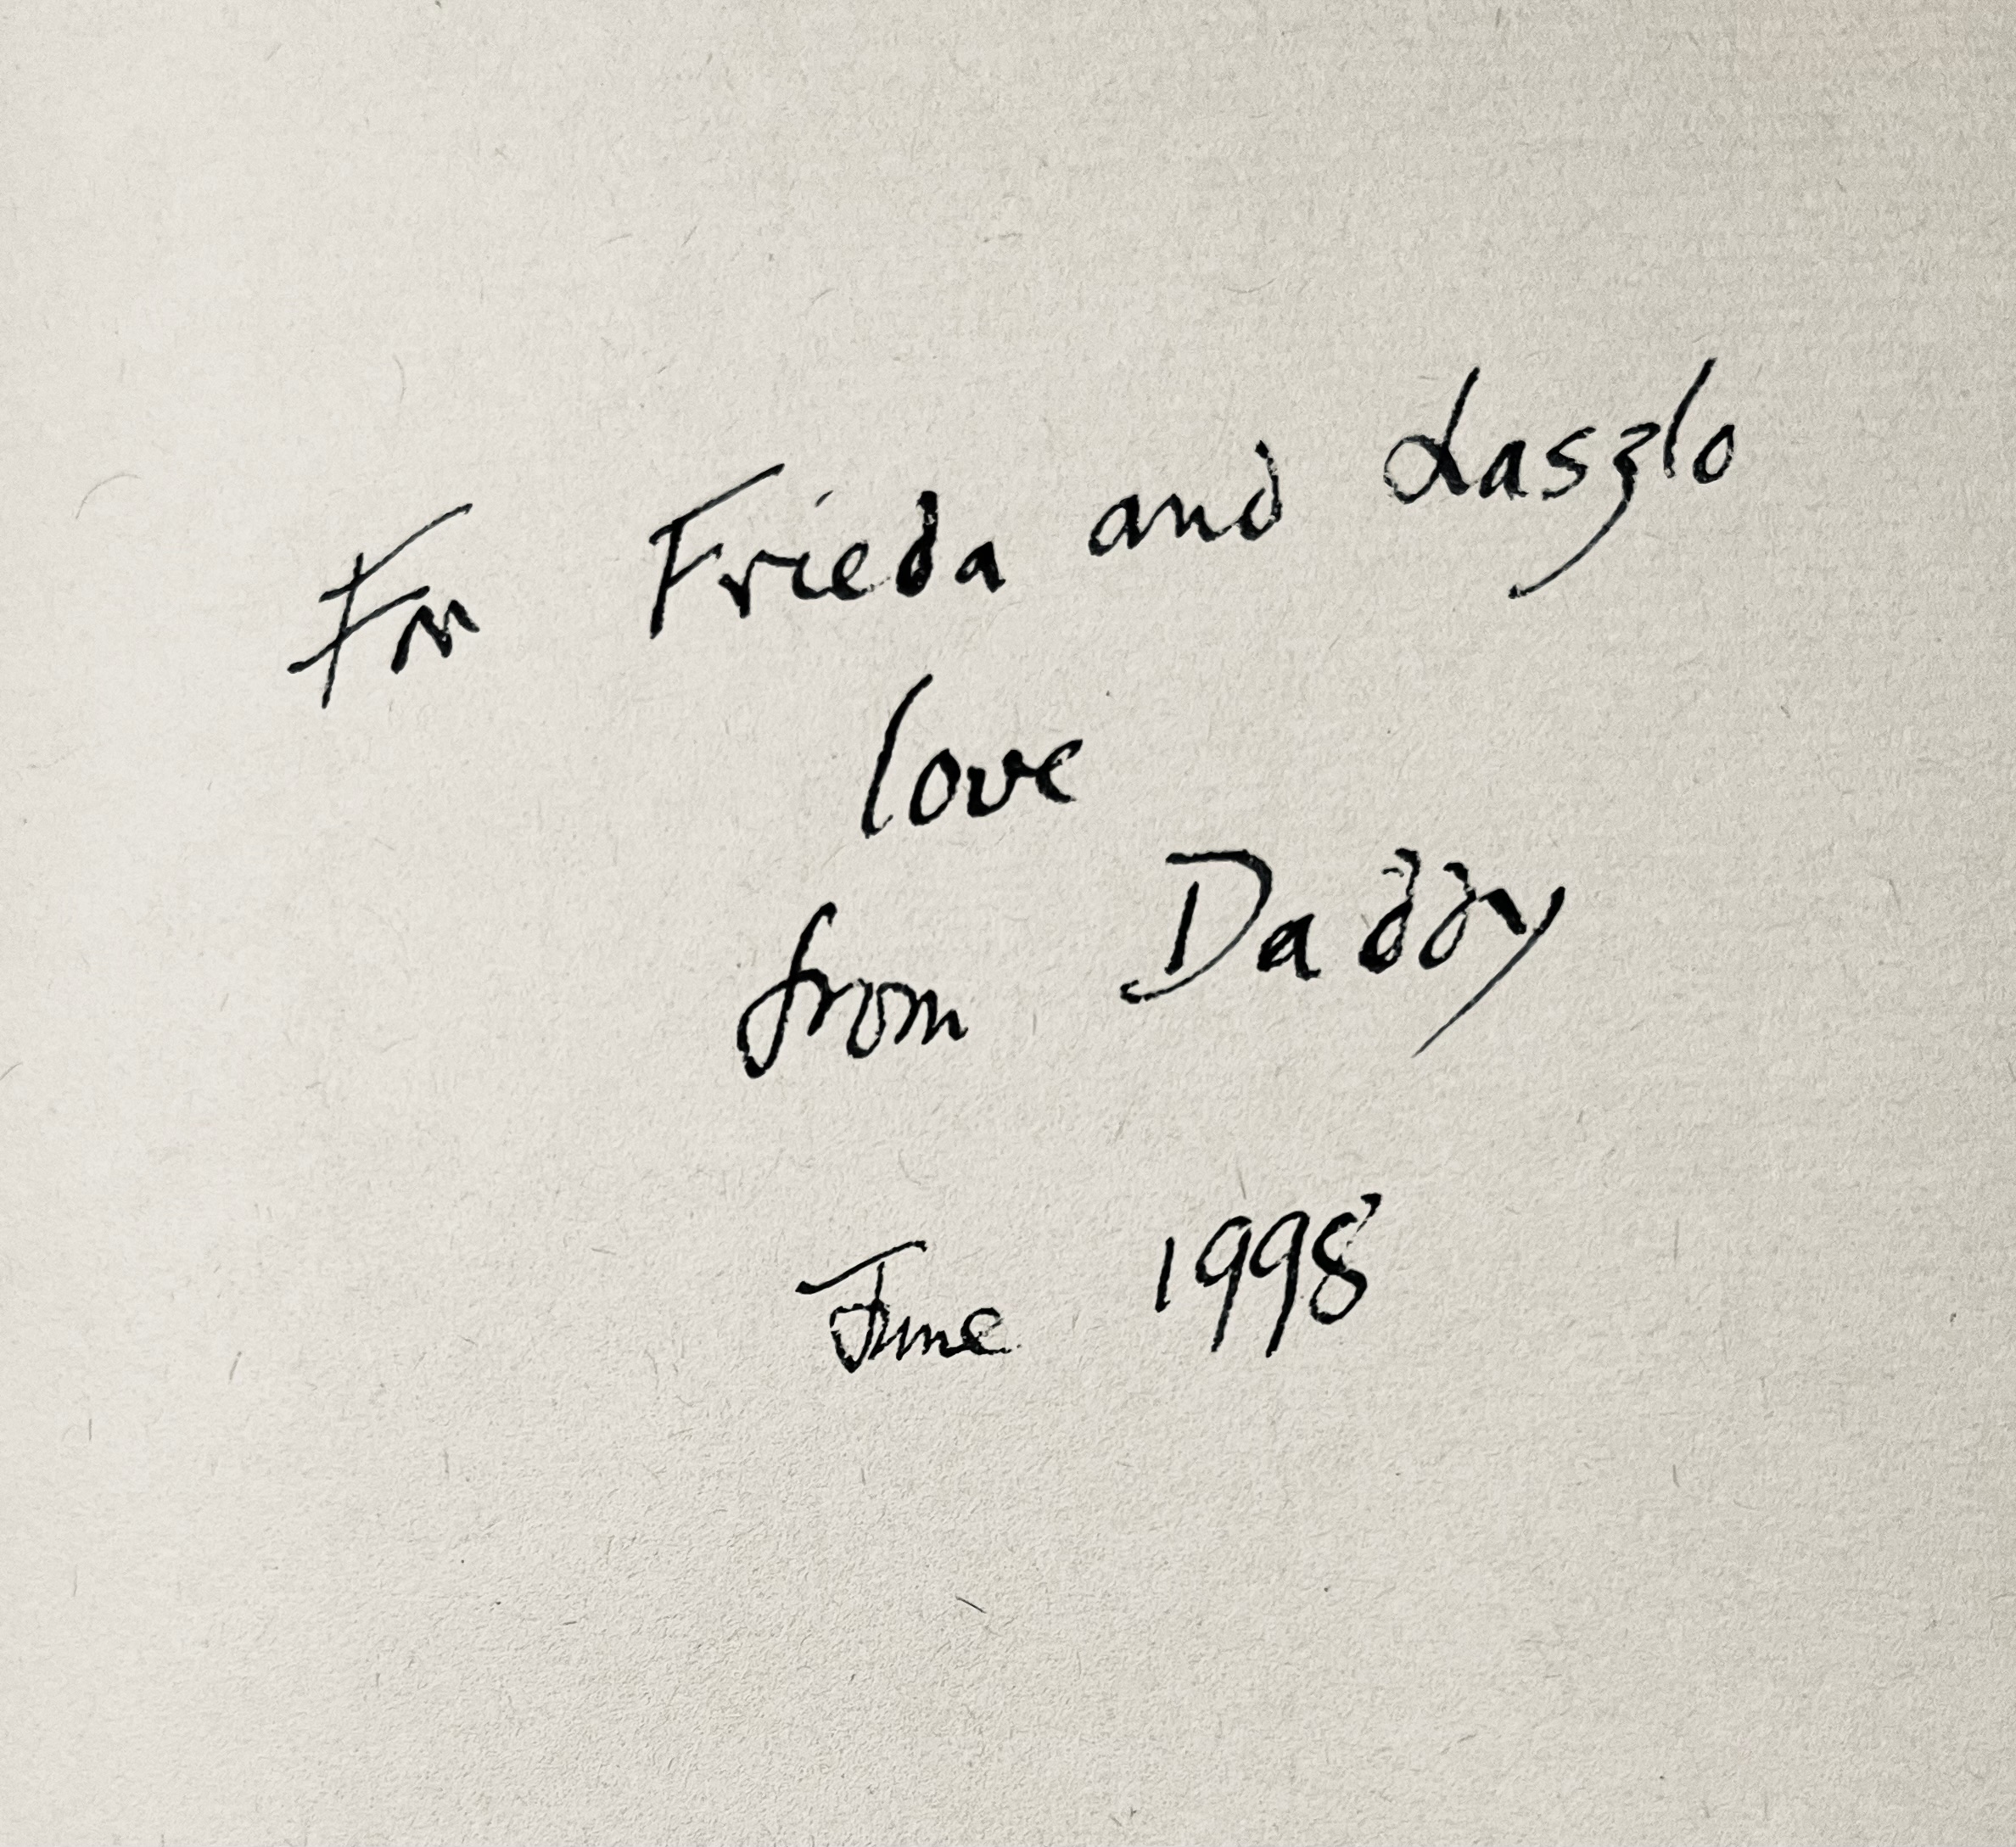 For Frieda and Laszlo
love
from Daddy
June 1998